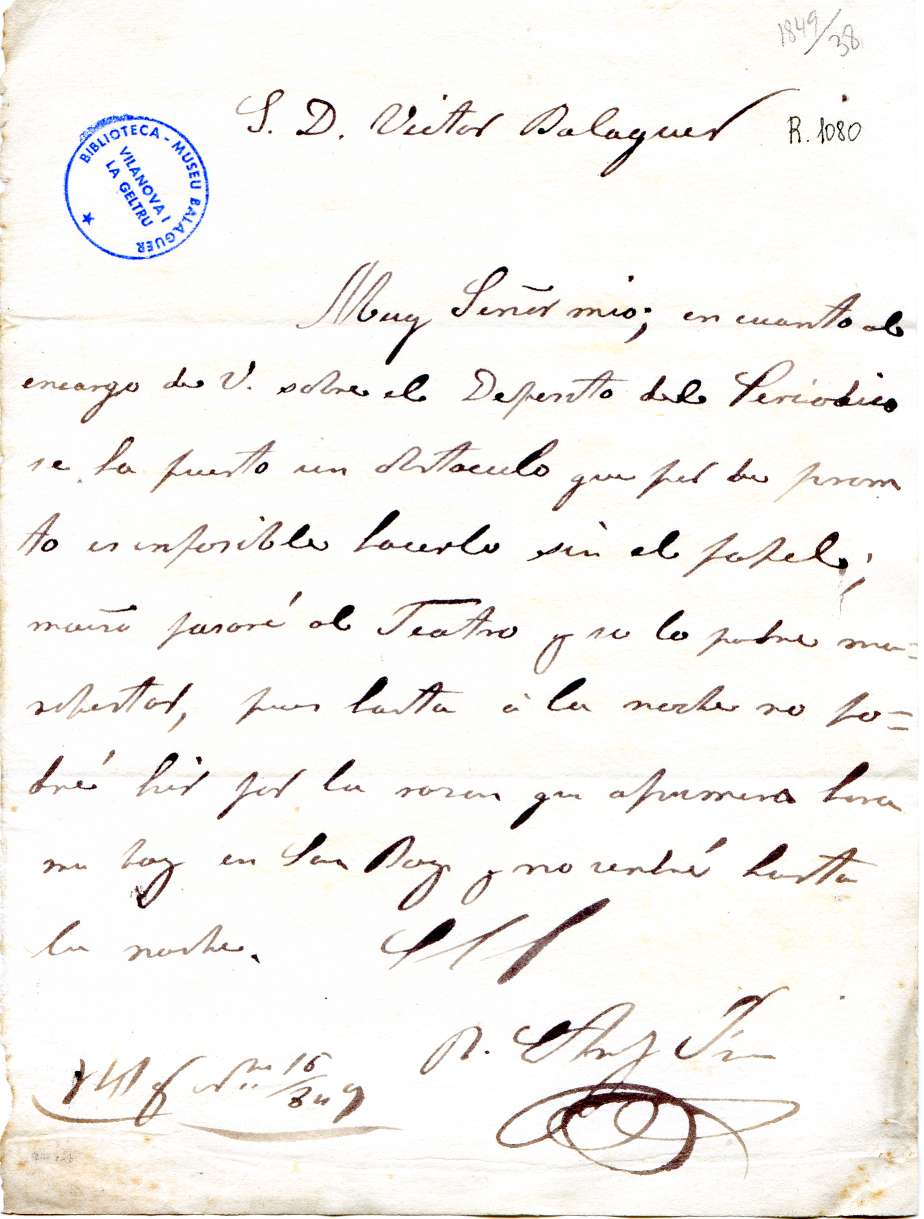 1849/38
S. D. Victor Balaguer
R. 1080
BIBLIOTECA - MUSEU BALAGUER
VILANOVA I
LA GELTRU
Muy Señor mio; en cuanto al
encargo de V. sobre el Deposito del Periodico
se ha puesto un obstaculo que por de prom
to es imposible hacerlo sin el papel;
mañã pasaré al Teatro y se lo podre ma=
nifestar, pues hasta á la noche no po=
dré hir por la rason que a primera hora
me boy en San Boy y no vendré hasta
la noche.
R.
16